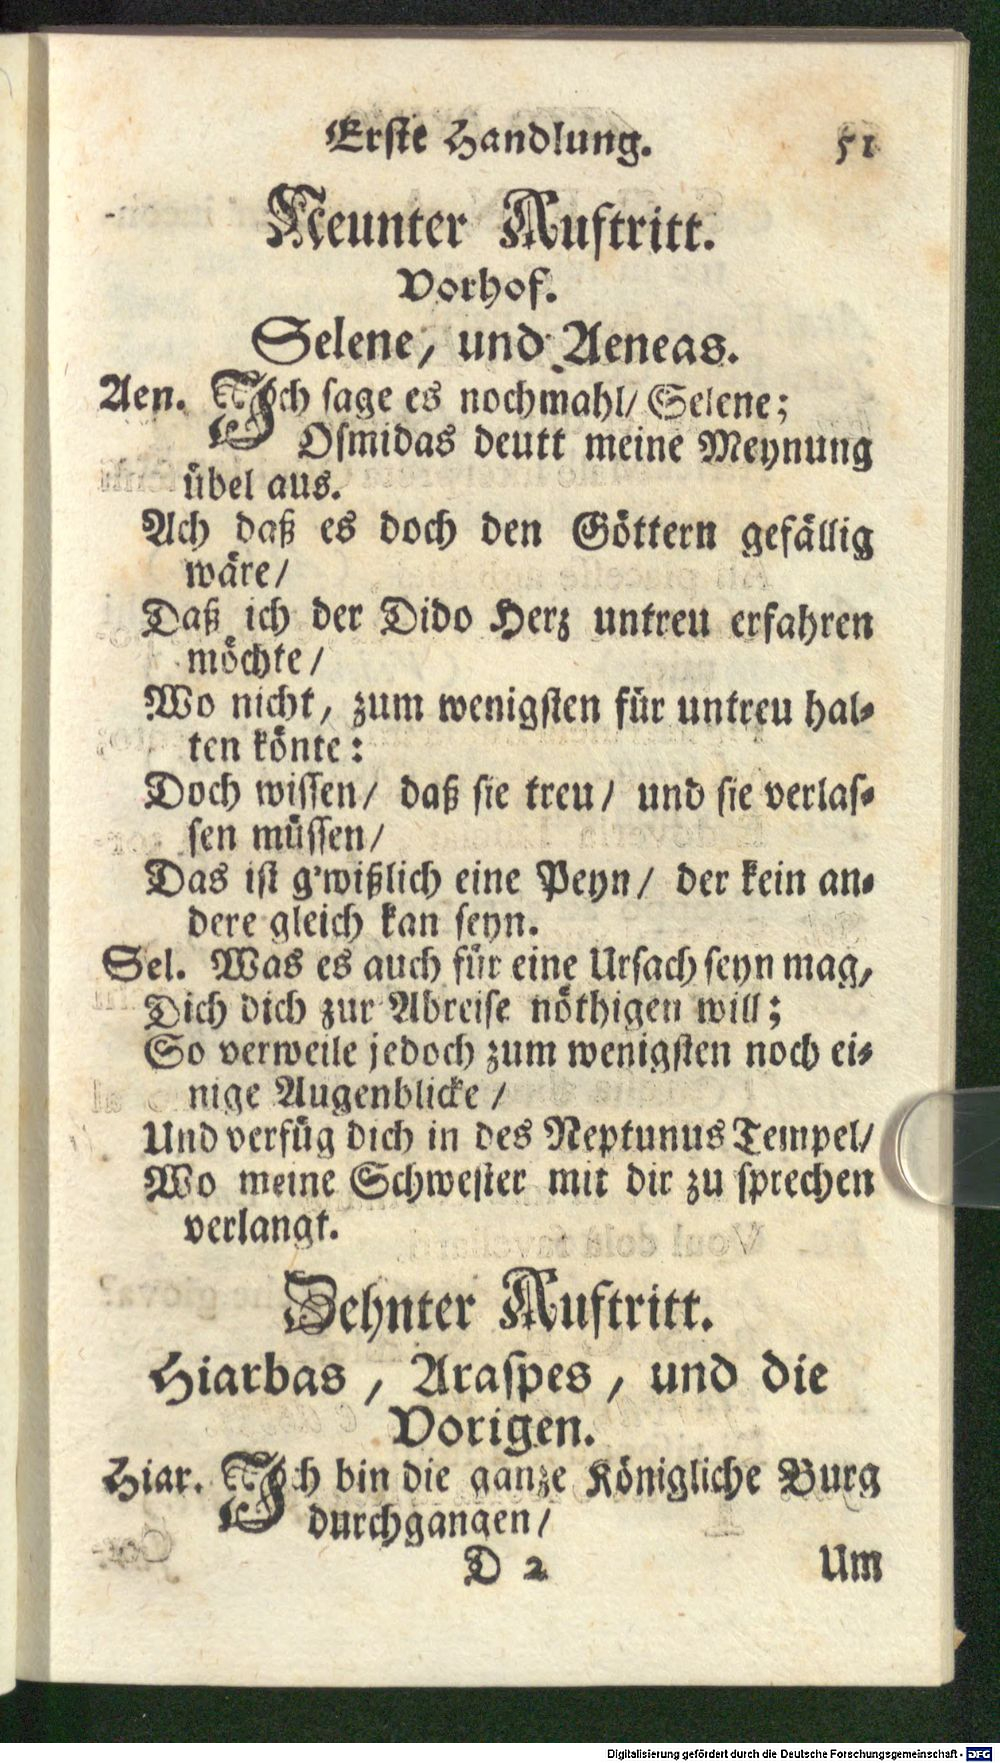 Erste Handlung. 51
Neunter Auftritt.
Vorhof.
Selene, und Aeneas.
Aen. Ich sage es nochmahl/ Selene;
Osmidas deutt meine Meynung
übel aus.
Ach daß es doch den Göttern gefällig
wäre/
Daß ich der Dido Herz untreu erfahren
möchte/
Wo nicht, zum wenigsten für untreu hal-
ten könte:
Doch wissen/ daß sie treu/ und sie verlas-
sen müssen/
Das ist g'wißlich eine Peyn/ der kein an-
dere gleich kan seyn.
Sel. Was es auch für eine Ursach seyn mag,
Dich dich zur Abreise nöthigen will;
So verweile jedoch zum wenigsten noch ei-
nige Augenblicke/
Und verfüg dich in des Neptunus Tempel/
Wo meine Schwester mit dir zu sprechen
verlangt.
Zehnter Auftritt.
Hiarbas, Araspes, und die
Vorigen.
Hiar. Ich bin die ganze Königliche Burg
durchgangen/
D 2 Um
Digitalisierung gefördert durch die Deutsche Forschungsgemeinschaft - DFG